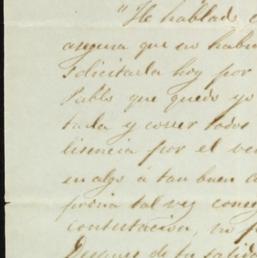 "He hablado
asegura que no habia
solicitarla hoy por
Pablo que quedo yo
tarla y correr todos
licencia por el
en algo á tan buen
podria tal vez
contestacion, no
Despues de tu salida